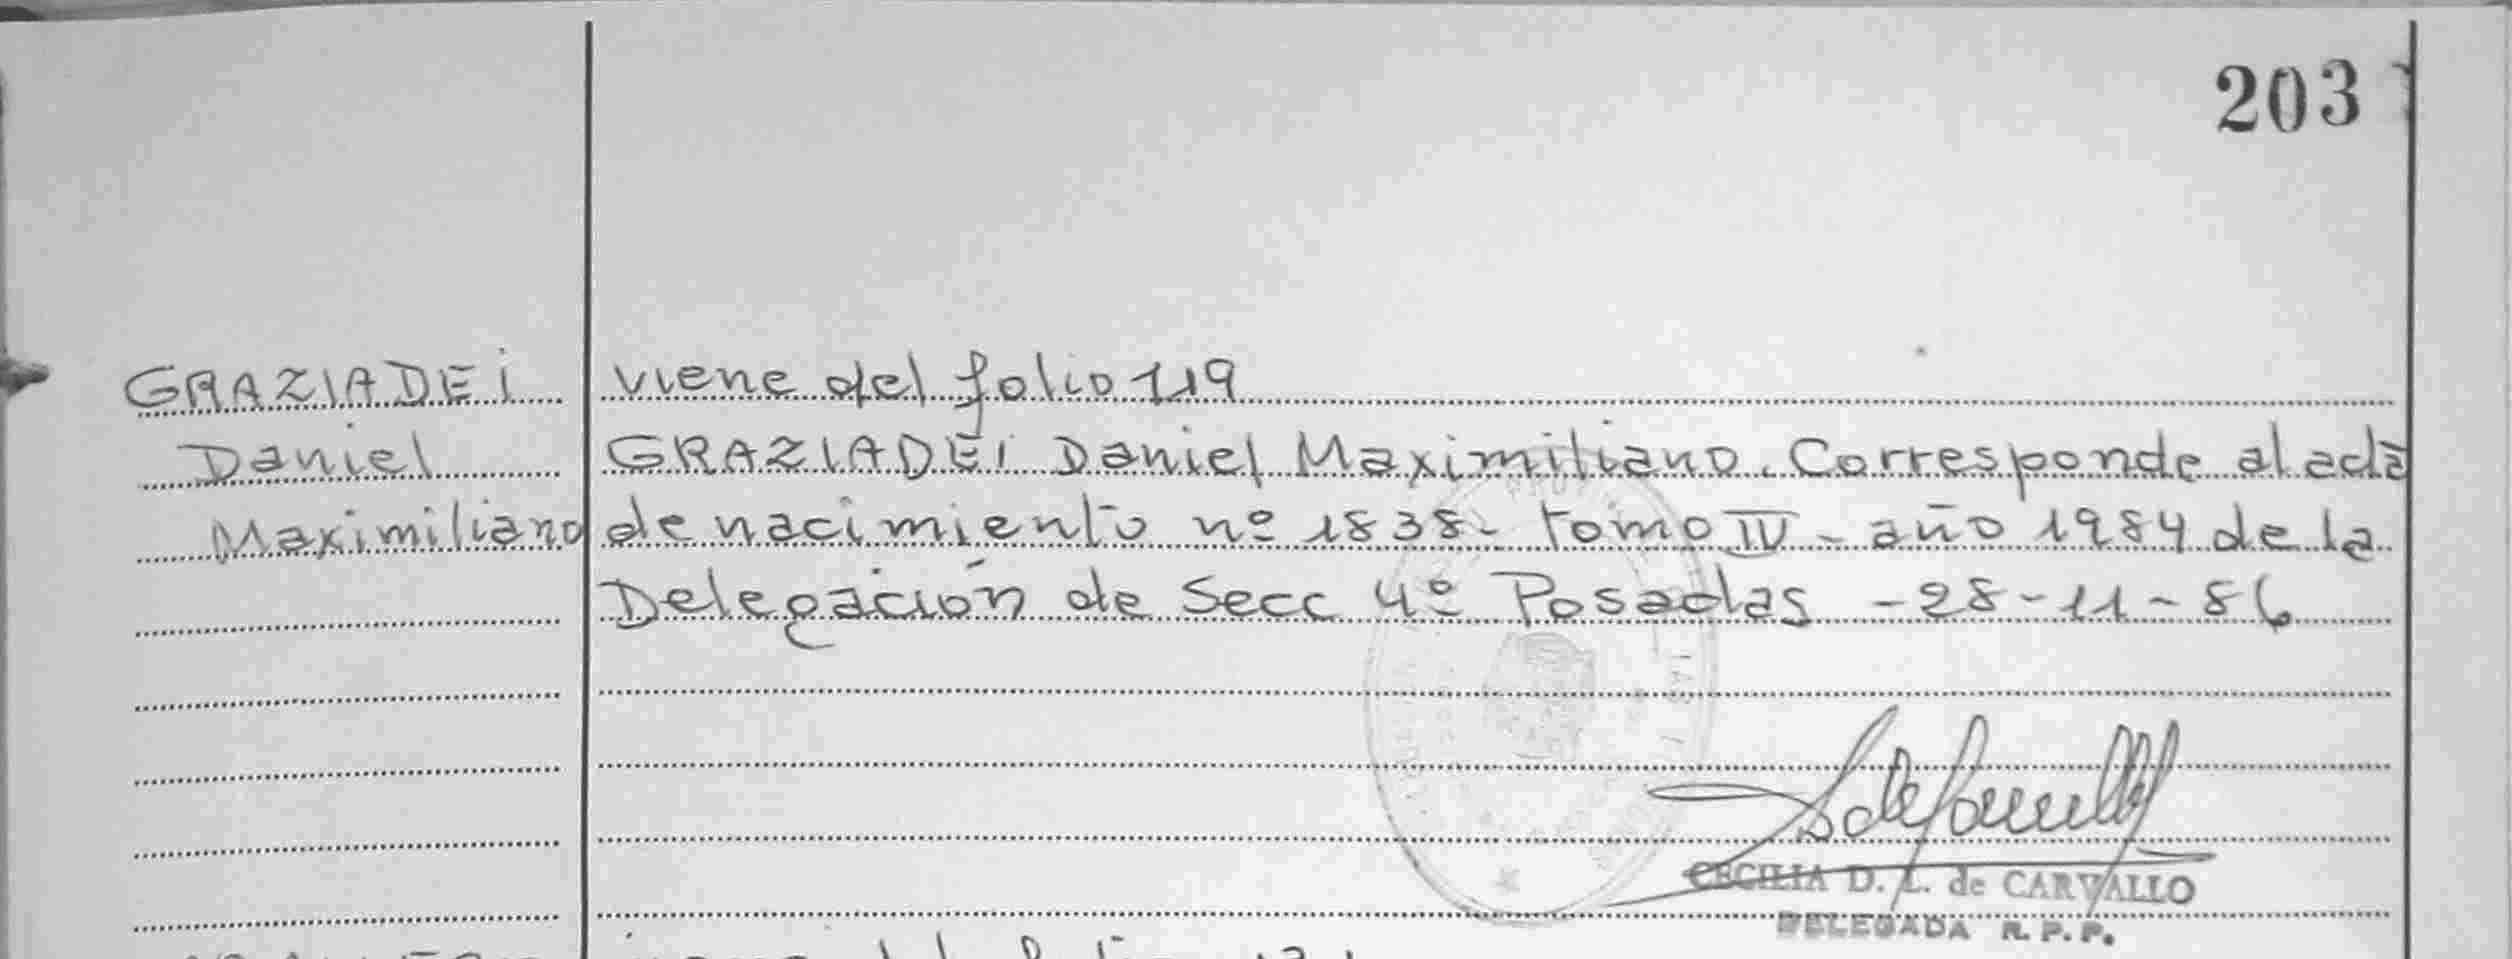 203
GRAZIADEI
Daniel
Maximiliano
viene del folio 119
GRAZIADEI Daniel Maximiliano. Corresponde al acta
de nacimiento nº 1838- tomo IV - año 1984 de la
Delegación de Secc 4º Posadas - 28-11-86
CECILIA D. L. de CARVALLO
DELEGADA R. P. P.